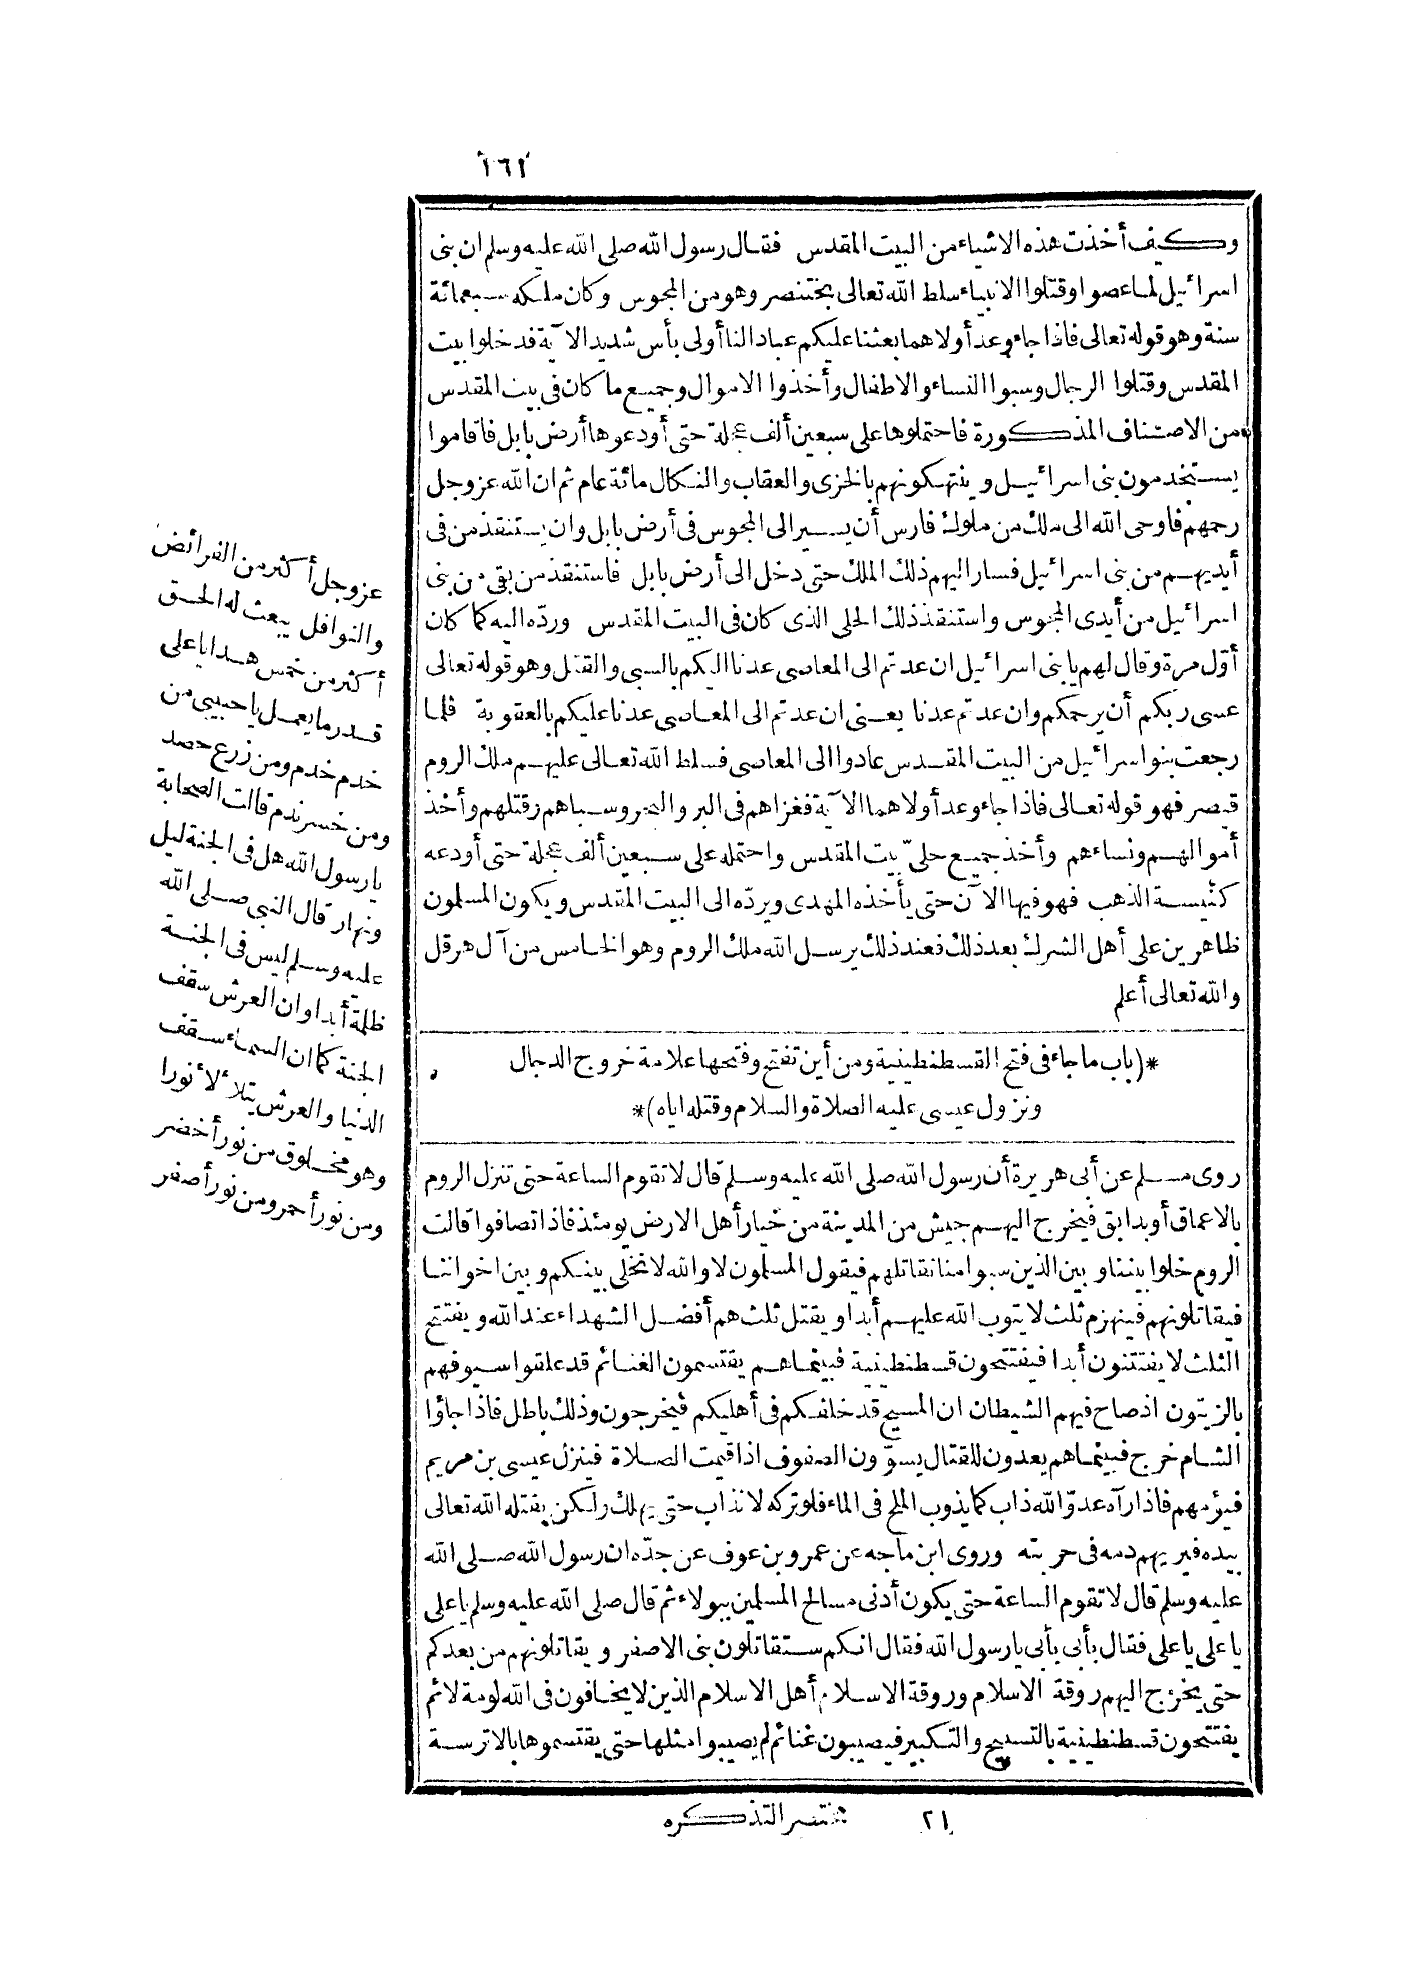 ١٦١
وكيف أخذت هذه الاشياء من البيت المقدس فقال رسول الله صلى الله عليه وسلم ان بنى
اسرائيل لما عصوا وقتلوا الانبياء سلط الله تعالى بختنصر وهو من المجوس وكان ملكه سبعمائة
سنة وهو قوله تعالى فاذا جاء وعد أولاهما بعثنا عليكم عبادا لنا أولى بأس شديد الآية فدخلوا بيت
المقدس وقتلوا الرجال وسبوا النساء والاطفال وأخذوا الاموال وجميع ما كان فى بيت المقدس
من الاصناف المذكورة فاحتملوها على سبعين ألف عجلة حتى أودعوها أرض بابل فاقاموا
يستخدمون بنى اسرائيل وينتهكونهم بالخزى والعقاب والنكال مائة عام ثم ان الله عز وجل
رحمهم فاوحى الله الى ملك من ملوك فارس أن يسير الى المجوس فى أرض بابل وان يستنقذ من فى
أيديهم من بنى اسرائيل فسار اليهم ذلك الملك حتى دخل الى أرض بابل فاستنقذ من بقى من بنى
اسرائيل من أيدى المجوس واستنقذ ذلك الحلى الذى كان فى البيت المقدس وردّه اليه كما كان
أوّل مرة وقال لهم يا بنى اسرائيل ان عدتم الى المعاصى عدنا اليكم بالسبى والقتل وهو قوله تعالى
عسى ربكم أن يرحمكم وان عدتم عدنا يعنى ان عدتم الى المعاصى عدنا عليكم بالعقوبة فلما
رجعت بنو اسرائيل من البيت المقدس عادوا الى المعاصى فسلط الله تعالى عليهم ملك الروم
قيصر فهو قوله تعالى فاذا جاء وعد أولاهما الآية فغزاهم فى البر والبحر وسباهم وقتلهم وأخذ
أموالهم ونساءهم وأخذ جميع حلىّ بيت المقدس واحتمله على سبعين ألف عجلة حتى أودعه
كنيسة الذهب فهو فيها الآن حتى يأخذه المهدى ويردّه الى البيت المقدس ويكون المسلمون
ظاهرين على أهل الشرك بعد ذلك فعند ذلك يرسل الله ملك الروم وهو الخامس من آل هرقل
والله تعالى أعلم
*(باب ما جاء فى فتح القسطنطينية ومن أين تفتح وفتحها علامة خروج الدجال
ونزول عيسى عليه الصلاة والسلام وقتله اياه)*
روى مسلم عن أبى هريرة أن رسول الله صلى الله عليه وسلم قال لا تقوم الساعة حتى تنزل الروم
بالاعماق أو بدابق فيخرج اليهم جيش من المدينة من خيار أهل الارض يومئذ فاذا تصافوا قالت
الروم خلوا بيننا وبين الذين سبوا منا نقاتلهم فيقول المسلمون لا والله لا نخلى بينكم وبين اخواننا
فيقاتلونهم فينهزم ثلث لا يتوب الله عليهم أبدا ويقتل ثلث هم أفضل الشهداء عند الله ويفتتح
الثلث لا يفتتنون أبدا فيفتتحون قسطنطينية فبينماهم يقتسمون الغنائم قد علقوا سيوفهم
بالزيتون اذ صاح فيهم الشيطان ان المسيح قد خلفكم فى أهليكم فيخرجون وذلك باطل فاذا جاؤا
الشام خرج فبينماهم يعدون للقتال يسوّون الصفوف اذا قيمت الصلاة فينزل عيسى بن مريم
فيؤمهم فاذا رآه عدوّ الله ذاب كما يذوب الملح فى الماء فلو تركه لانذاب حتى يهلك ولكن يقتله الله تعالى
بيده فيريهم دمه فى حربته وروى ابن ماجه عن عمرو بن عوف عن جدّه ان رسول الله صلى الله
عليه وسلم قال لا تقوم الساعة حتى يكون أدنى مسالح المسلمين ببولاء ثم قال صلى الله عليه وسلم يا على
يا على يا على فقال بأبى بأبى يا رسول الله فقال انكم ستقاتلون بنى الاصفر ويقاتلونهم من بعدكم
حتى يخرج اليهم روقة الاسلام وروقة الاسلام أهل الاسلام الذين لا يخافون فى الله لومة لائم
يفتتحون قسطنطينية بالتسبيح والتكبير فيصيبون غنائم لم يصيبوا مثلها حتى يقتسموها بالاترسة
عز وجل أكثر من الفرائض
والنوافل يبعث له الحق
أكثر من خمس هدايا على
قدر ما يعمل يا حبيبى من
خدم خدم ومن زرع حصد
ومن خسر ندم قالت الصحابة
يا رسول الله هل فى الجنة ليل
ونهار قال النبى صلى الله
عليه وسلم ليس فى الجنة
ظلمة أبدا وان العرش سقف
الجنة كما ان السماء سقف
الدنيا والعرش يتلألأ نورا
وهو مخلوق من نور أخضر
ومن نور أحمر ومن نور أصفر
٢١ مختصر التذكره